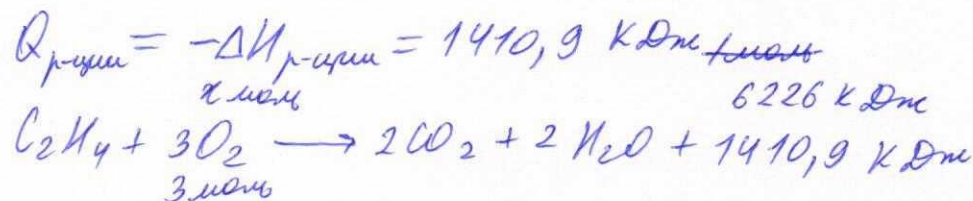 Qр-ции = -ΔHр-ции = 1410,9 кДж /моль
x моль 6226 кДж
C2H4 + 3O2 → 2CO2 + 2H2O + 1410,9 кДж
3 моль